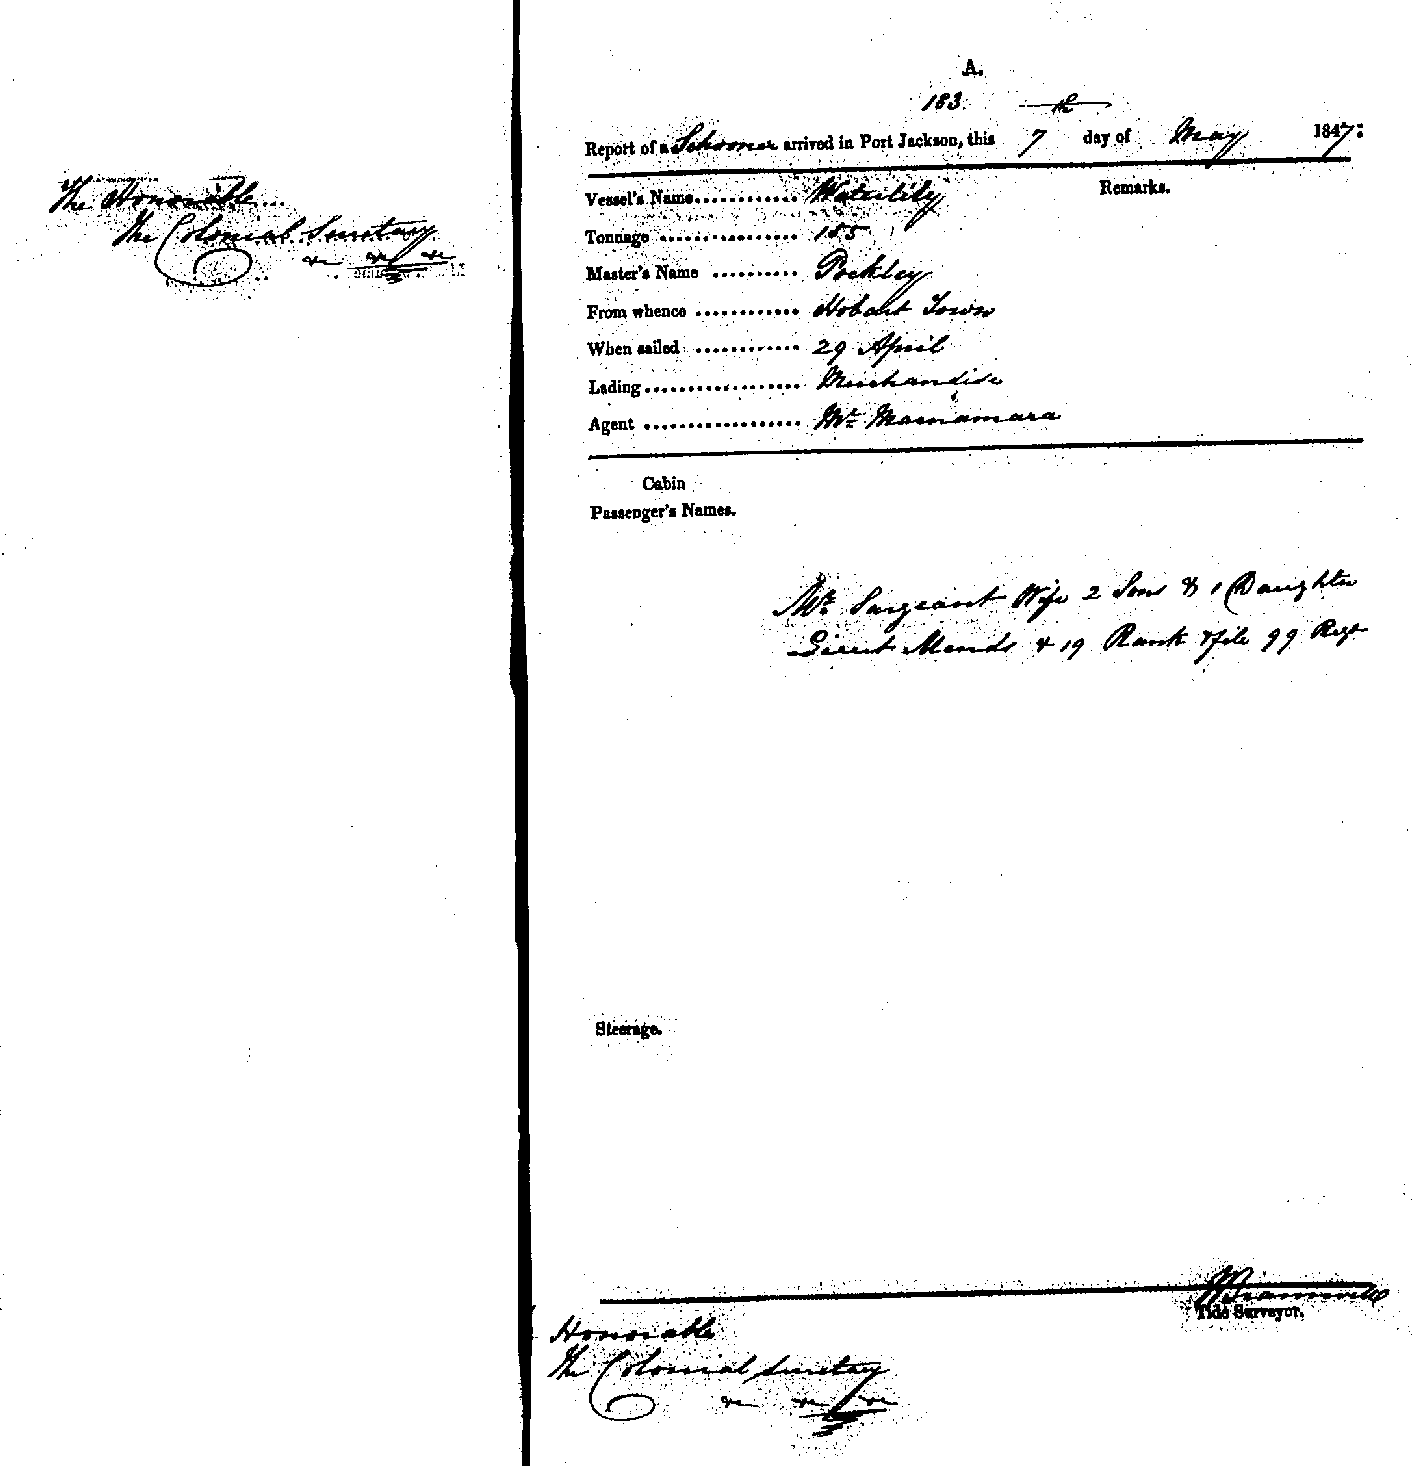 The Honorable
The Colonial Secretary
&c &c &c
A.
183
th
Report of a Schooner arrived in Port Jackson, this 7 day of May 1847:
Vessel's Name............ Waterlily Remarks.
Tonnage ................ 155
Master's Name .......... Pockley
From whence ............ Hobart Town
When sailed ............ 29 April
Lading.................. Merchandise
Agent .................. Mr. Macnamara
Cabin
Passenger's Names.
Mr. Sargeant Wife 2 Sons & 1 Daughter
Lieut Mends & 19 Rank & file 99 Regt
Steerage.
Tide Surveyor.
Honorable
The Colonial Secretary
&c &c &c